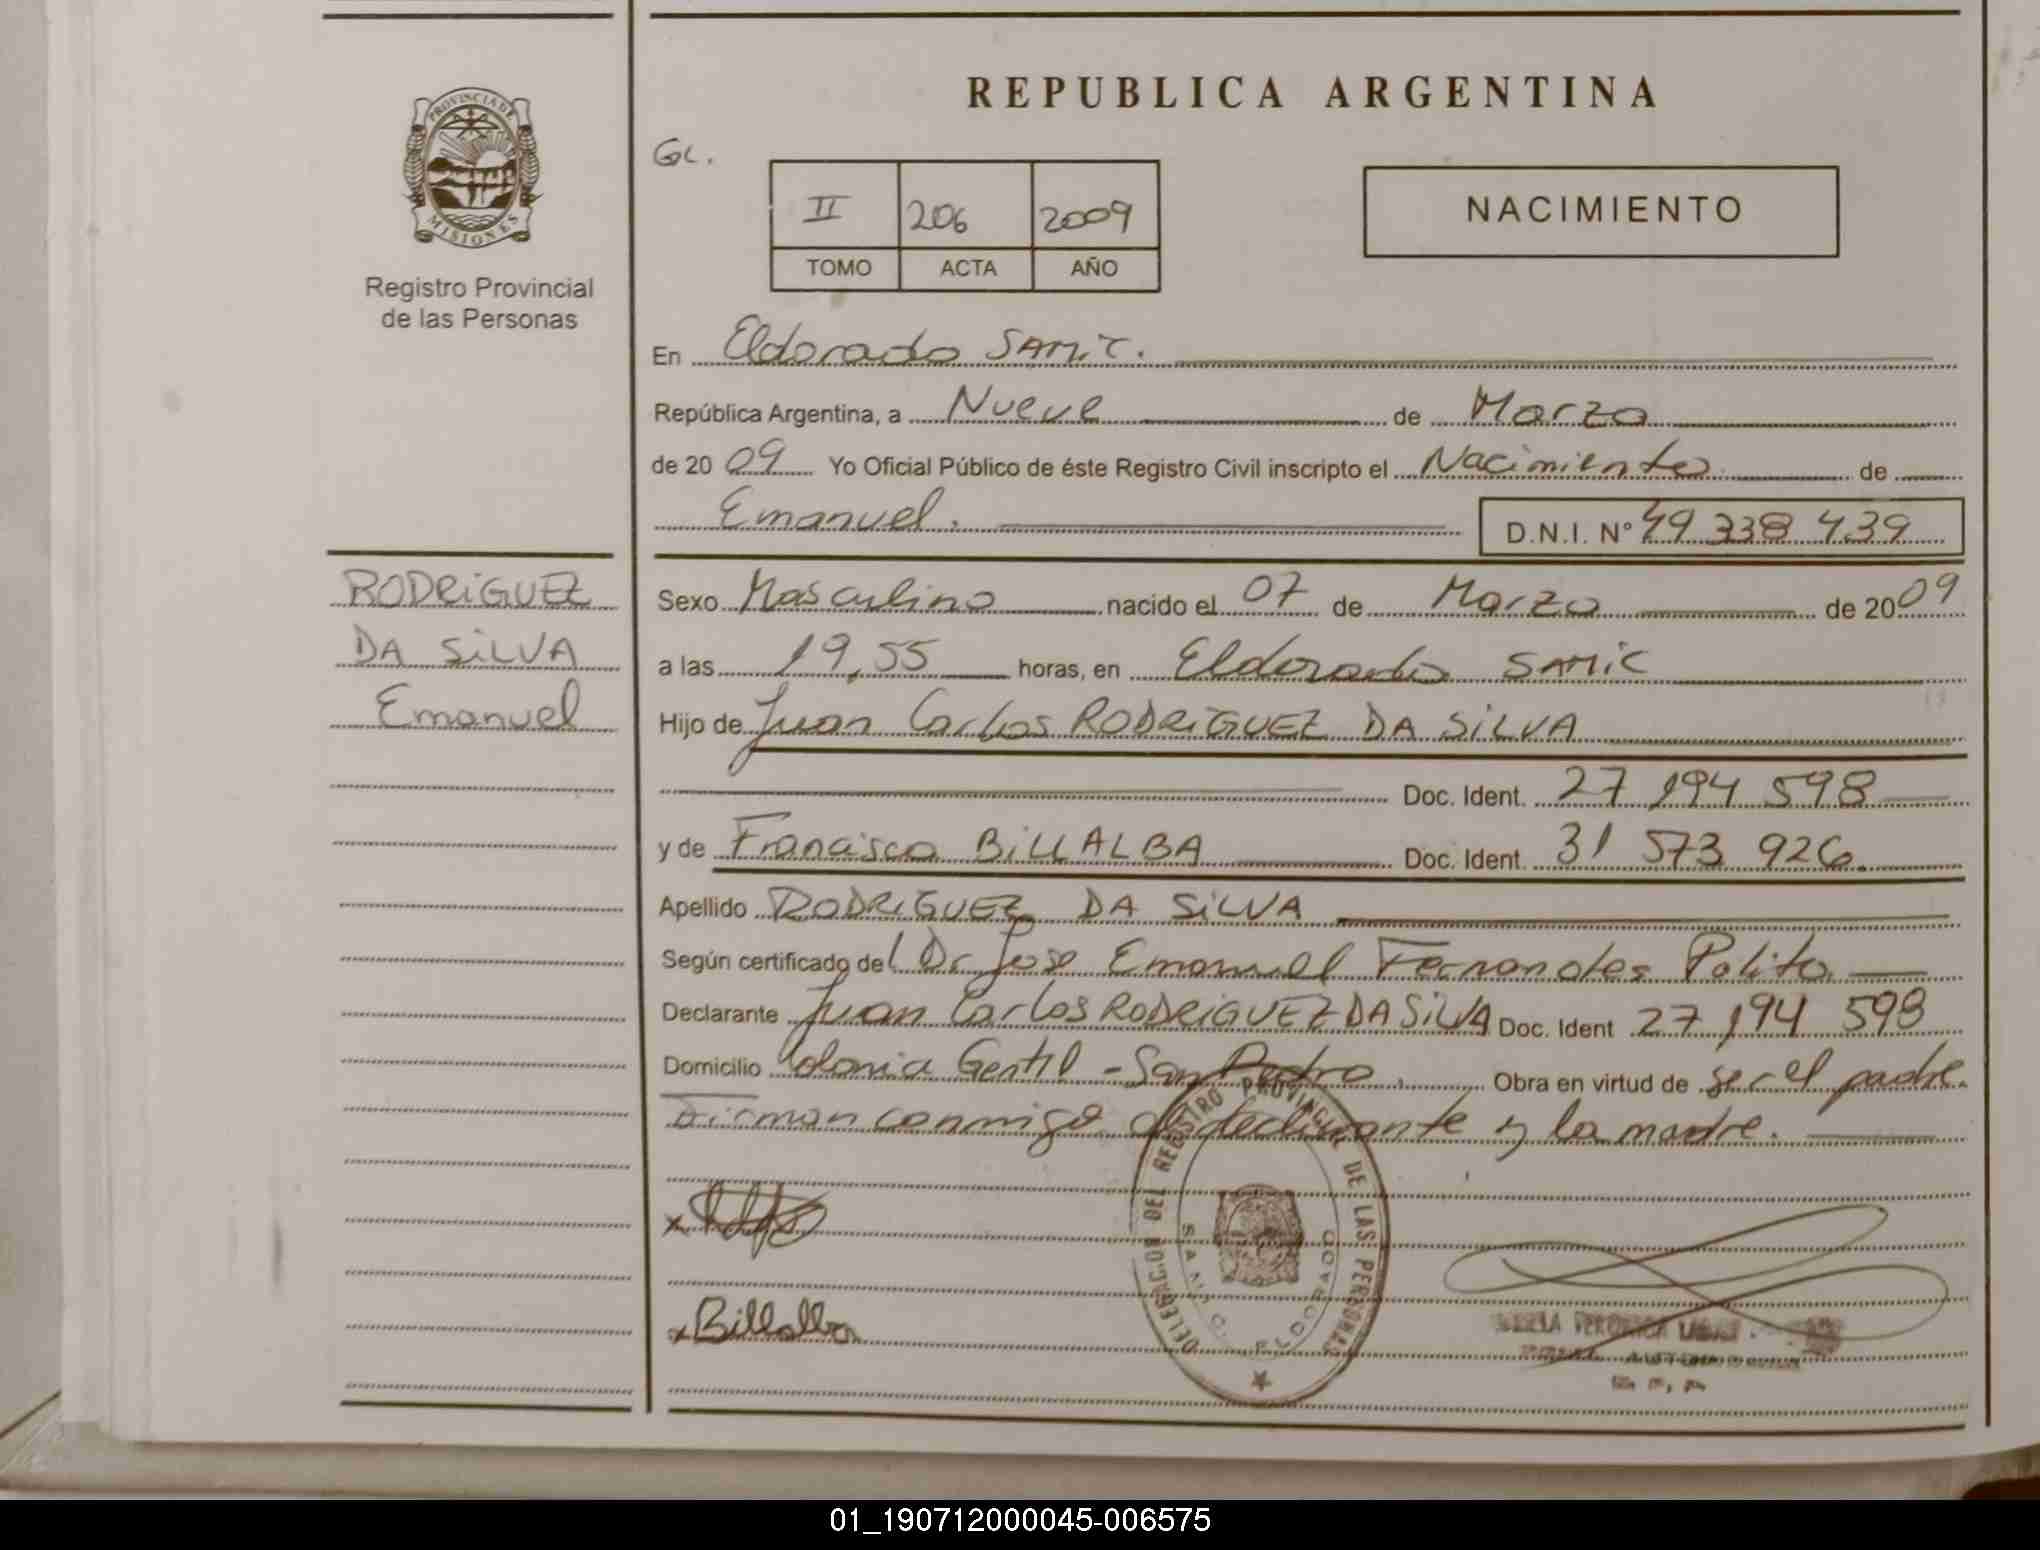 REPUBLICA ARGENTINA
PROVINCIA DE
MISIONES
Registro Provincial
de las Personas
GL.
II 206 2009
TOMO ACTA AÑO
NACIMIENTO
En Eldorado SAMIC.
República Argentina, a Nueve de Marzo
de 20 09 Yo Oficial Público de éste Registro Civil inscripto el Nacimiento de
Emanuel. D.N.I. Nº 49 338 439
RODRIGUEZ
DA SILVA
Emanuel
Sexo Masculino nacido el 07 de Marzo de 20 09
a las 19,55 horas, en Eldorado SAMIC
Hijo de Juan Carlos RODRIGUEZ DA SILVA
Doc. Ident. 27 194 598
y de Francisca BILLALBA Doc. Ident. 31 573 926.
Apellido RODRIGUEZ DA SILVA
Según certificado del Dr Jose Emanuel Fernandes Polito
Declarante Juan Carlos RODRIGUEZ DA SILVA Doc. Ident 27 194 598
Domicilio Colonia Gentil - San Pedro Obra en virtud de ser el padre.
Firman conmigo el declarante y la madre.
x
x Billalba
DELEGACION DEL REGISTRO PROVINCIAL DE LAS PERSONAS
S.A.M.I.C. ELDORADO